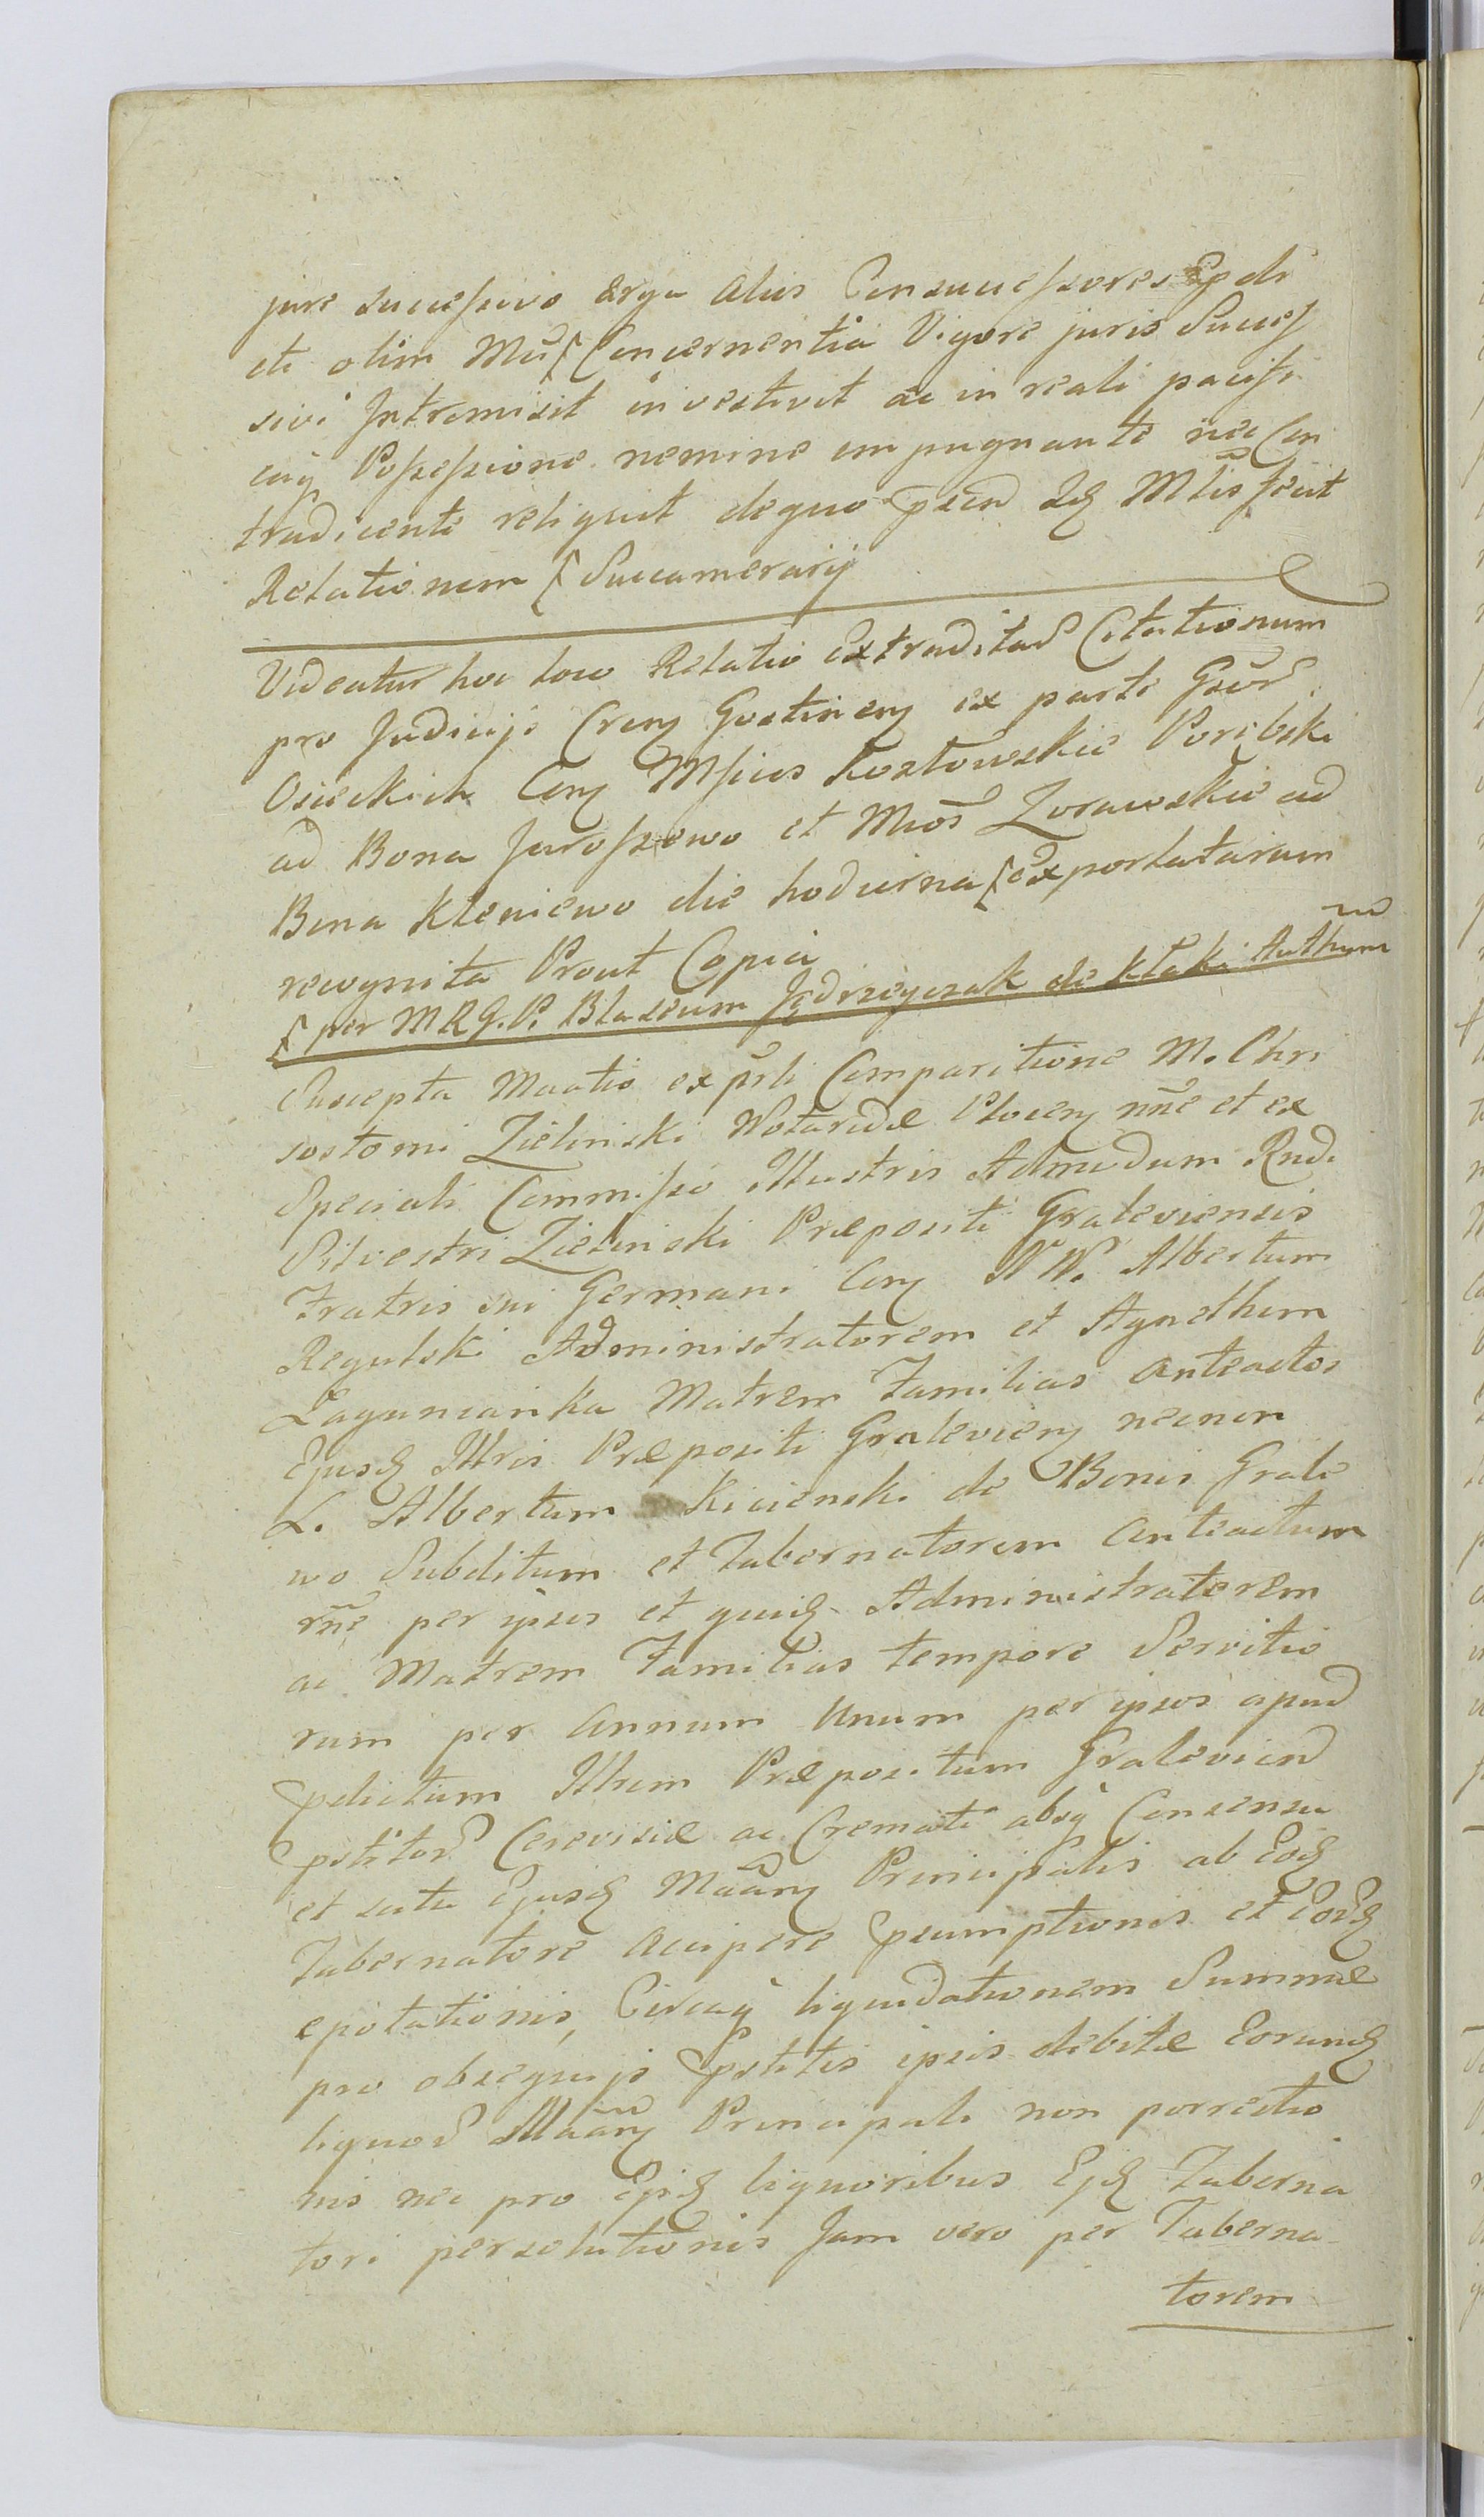 jure successivo erga alios Consuccessores Ejdē
dti olim Mci ſ Concernentia Vigore juris Succes
sivi Intromisit investivit ac in reali pacifi
caq Possessione nemine impugnante nec Con
tradicente reliquit de quo pñtē Idē Mtis fecit
Relationem ſ Succamerarij
Videatur hoc loco Relatio Extraditar Citationum
pro Judicijs Cren Gostinen ex parte Gsor
Osieckich Con Mficos Kozłowskie Poribski
ad Bona Jaroszewo et Mcos Zorawskie ad
Bona Kleniewo die hodierna ſ exportatarum
recognita Prout Copia
ſ per M R G. P. Blaseum Jędrzeyczak de Kłaki Authum
Suscepta Mvatio ex prli Comparitione M. Chri
sostomi Zieliński Notaridæ Plocen nñe et ex
Speciali Commisso Illustris Admodum Rndi
Silvestri Zieliński Præpositi Graleviensis
Fratris sui Germani Con N N. Albertum
Regulski Administratorem et Agnethem
Łaguniarika Matrem Familias anteactos
Ejusd Illris Præpositi Gralevien necnon
L. Albertum Kicienski de Bonis Grale
wo Subditum et Tabernatorem anteactum
rñe per ipsos et quid Administratorem
ac Matrem Familias tempore Servitio
rum per Annum Unum per ipsos apud
pdictum Illrem Præpositum Gralevien
pstitor Cerevisiæ ac Cremati absq Consensu
et scitu Ejusd Mãan Principalis ab Eod
Tabernatore accipere psumptionis et Eord
epotationis, Circaq liquidationem Summæ
pro obsequijs pstitis ipsis debitæ Eorund
liquor Mãan Principali non porrectio
nis nec pro Ejsd liquoribus Ejd Taberna
tori persolutionis Jam vero per Taberna
torem